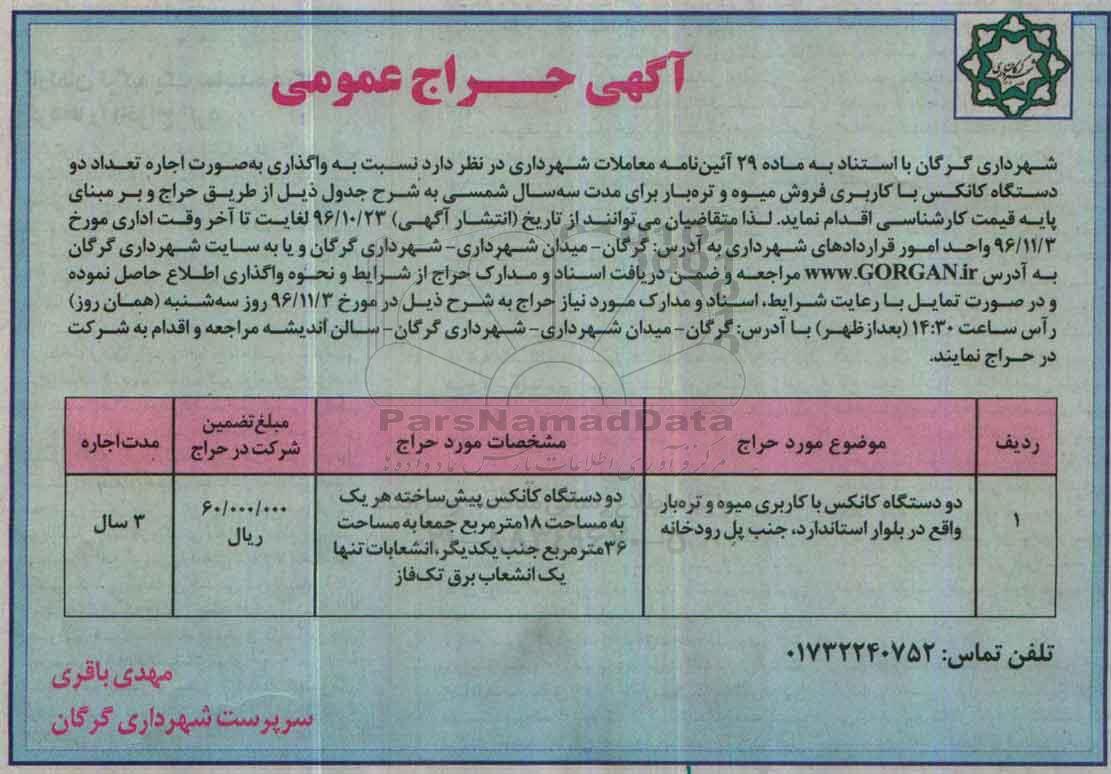 آگهی حـــراج عمومی
شهرداری گرگان
شهرداری گـرگان با استناد به ماده ۲۹ آئین‌نامه معاملات شهرداری در نظر دارد نسبت به واگذاری به‌صورت اجاره تعـداد دو
دستگاه کانکس با کاربری فروش میوه و تره‌بار برای مدت سه‌سال شمسی به شرح جدول ذیل از طریق حراج و بر مبنای
پایه قیمت کارشناسی اقدام نماید. لـذا متقاضیان می‌توانند از تاریخ (انتشار آگهی) ۹۶/۱۰/۲۳ لغایت تا آخر وقت اداری مورخ
۹۶/۱۱/۳ واحـد امور قراردادهای شهرداری به آدرس: گرگان- میدان شهرداری- شهرداری گرگان و یا به سایت شهرداری گرگان
به آدرس www.GORGAN.ir مراجعه و ضمن دریافت اسناد و مدارک حراج از شرایط و نحـوه واگذاری اطلاع حاصل نموده
و در صورت تمایل بـا رعایت شرایط، اسناد و مدارک مورد نیاز حراج به شـرح ذیل در مورخ ۹۶/۱۱/۳ روز سه‌شنبه (همان روز)
رأس ساعت ۱۴:۳۰ (بعدازظهر) بـا آدرس: گرگان- میدان شهرداری- شهرداری گرگان- سالن اندیشه مراجعه و اقدام به شرکت
در حـراج نمایند.
ردیف
موضوع مورد حراج
مشخصات مورد حراج
مبلغ تضمین
شرکت در حراج
مدت‌اجاره
۱
دو دستگاه کانکس با کاربری میوه و تره‌بار
واقع در بلوار استاندارد، جنب پل رودخانه
دو دستگاه کانکس پیش‌ساخته هر یک
به مساحت ۱۸مترمربع جمعا به مساحت
۳۶مترمربع جنب یکدیگر،انشعابات تنها
یک انشعاب برق تک‌فاز
۶۰/۰۰۰/۰۰۰
ریال
۳ سال
ParsNamadData
مرکز فرآوری اطلاعات پارس نماد داده‌ها
تلفن تماس: ۰۱۷۳۲۲۴۰۷۵۲
مهدی باقری
سرپرست شهرداری گرگان